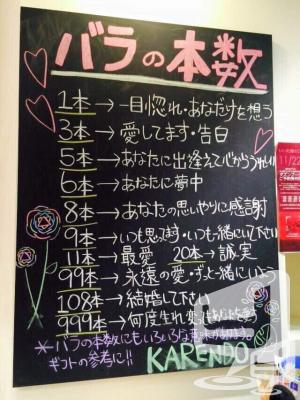 バラの本数
1本→一目惚れ・あなただけを想う
3本→愛してます・告白
5本→あなたに出逢えて心からうれしい
6本→あなたに夢中
8本→あなたの思いやりに感謝
9本→いつも想ってます・いつも一緒にいて下さい
11本→最愛 20本→誠実
99本→永遠の愛・ずっと一緒にいよう
108本→結婚して下さい
999本→何度生れ変
*バラの本数にもいろいろな意味があります。
ギフトの参考に!!
KARENDO
11/22